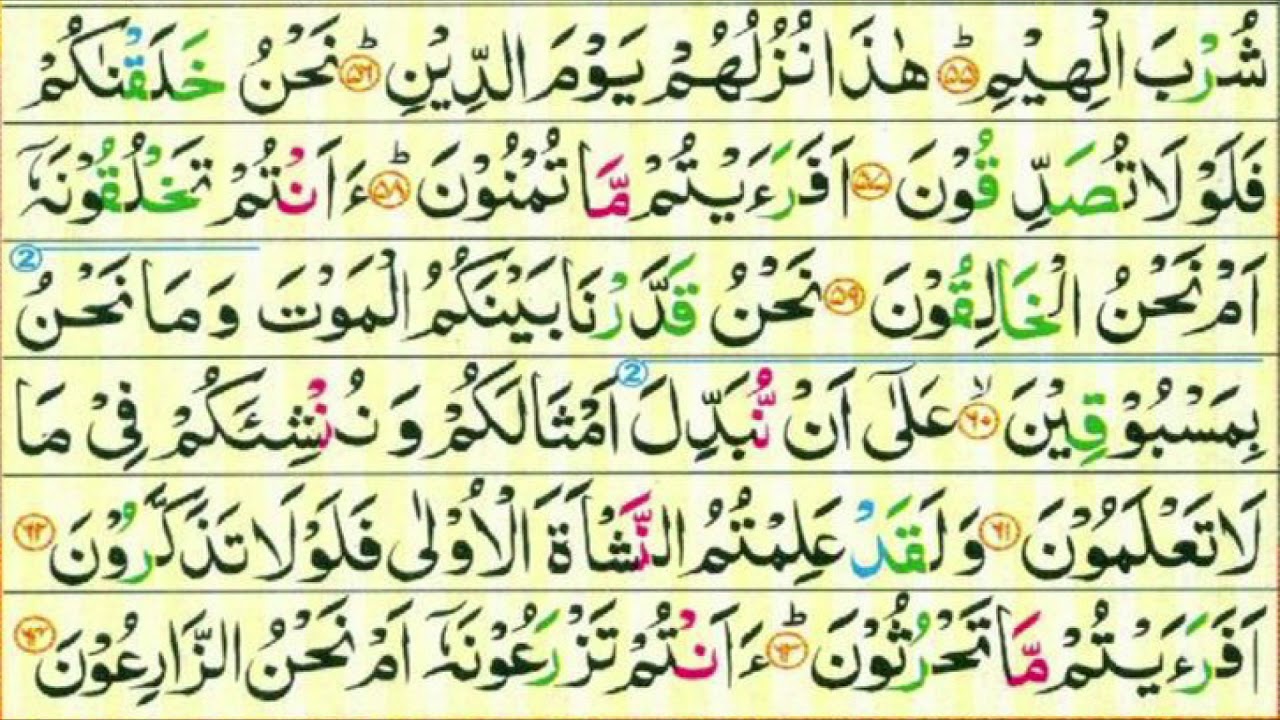 شُرْبَ الْهِيْمِ ؕ ﴿۵۵﴾ هٰذَا نُزُلُهُمْ يَوْمَ الدِّيْنِ ؕ ﴿۵۶﴾ نَحْنُ خَلَقْنٰكُمْ
فَلَوْ لَا تُصَدِّقُوْنَ ﴿۵۷﴾ اَفَرَءَيْتُمْ مَّا تُمْنُوْنَ ؕ ﴿۵۸﴾ ءَاَنْتُمْ تَخْلُقُوْنَهٗۤ
اَمْ نَحْنُ الْخَالِقُوْنَ ﴿۵۹﴾ نَحْنُ قَدَّرْنَا بَيْنَكُمُ الْمَوْتَ وَمَا نَحْنُ 2
بِمَسْبُوْقِيْنَ ۙ ﴿۶۰﴾ عَلٰۤى اَنْ نُّبَدِّلَ 2 اَمْثَالَكُمْ وَ نُنْشِئَكُمْ فِيْ مَا
لَا تَعْلَمُوْنَ ﴿۶۱﴾ وَلَقَدْ عَلِمْتُمُ النَّشْاَةَ الْاُوْلٰى فَلَوْلَا تَذَكَّرُوْنَ ﴿۶۲﴾
اَفَرَءَيْتُمْ مَّا تَحْرُثُوْنَ ؕ ﴿۶۳﴾ ءَاَنْتُمْ تَزْرَعُوْنَهٗۤ اَمْ نَحْنُ الزَّارِعُوْنَ ﴿۶۴﴾